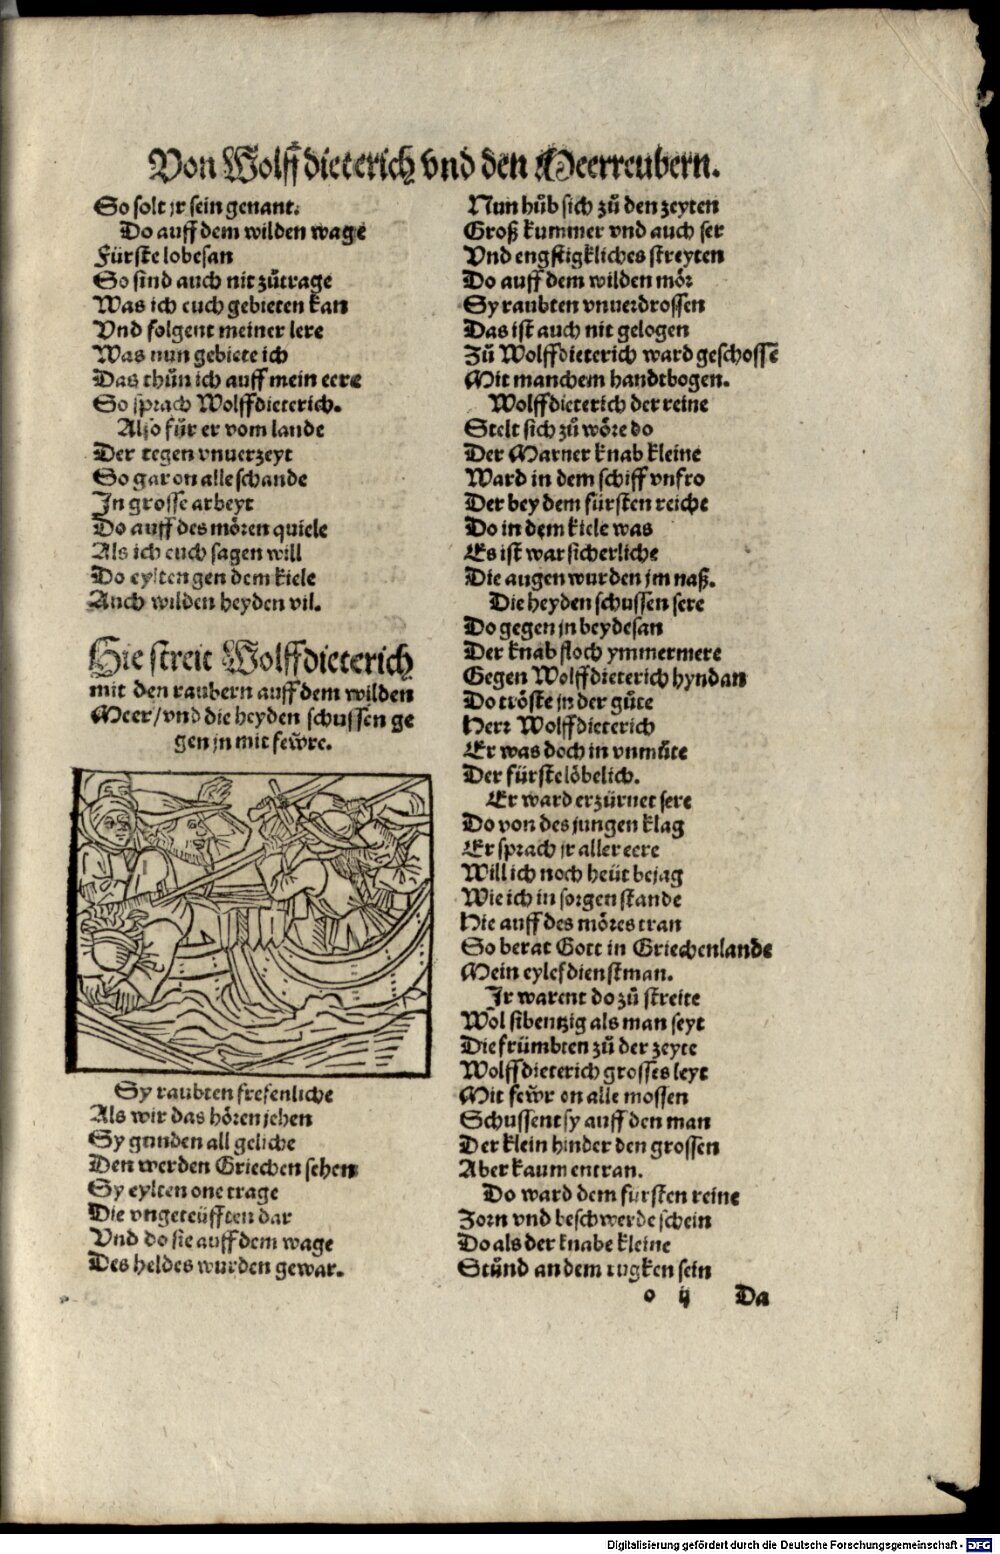 Von Wolffdieterich vnd den Meerreubern.
So solt jr sein genant.
Do auff dem wilden wage
Fürste lobesan
So sind auch nit zůtrage
Was ich euch gebieten kan
Vnd folgent meiner lere
Was nun gebiete ich
Das thůn ich auff mein eere
So sprach Wolffdieterich.
Also fůr er vom lande
Der tegen vnuerzeyt
So gar on alle schande
In grosse arbeyt
Do auff des mören quiele
Als ich euch sagen will
Do eylten gen dem kiele
Auch wilden heyden vil.
Hie streit Wolffdieterich
mit den raubern auff dem wilden
Meer/vnd die heyden schussen ge
gen jn mit fewre.
Sy raubten frefenliche
Als wir das hören jehen
Sy gunden all geliche
Den werden Griechen sehen
Sy eylten one trage
Die vngeteüfften dar
Vnd do sie auff dem wage
Des heldes wurden gewar.
Nun hůb sich zů den zeyten
Groß kummer vnd auch ser
Vnd engstigkliches streyten
Do auff dem wilden mör
Sy raubten vnuerdrossen
Das ist auch nit gelogen
Zů Wolffdieterich ward geschossē
Mit manchem handtbogen.
Wolffdieterich der reine
Stelt sich zů wöre do
Der Marner knab kleine
Ward in dem schiff vnfro
Der bey dem fürsten reiche
Do in dem kiele was
Es ist war sicherliche
Die augen wurden jm naß.
Die heyden schussen sere
Do gegen jn beydesan
Der knab floch ymmermere
Gegen Wolffdieterich hyndan
Do tröste jn der gůte
Herr Wolffdieterich
Er was doch in vnmůte
Der fürste löbelich.
Er ward erzürnet sere
Do von des jungen klag
Er sprach jr aller eere
Will ich noch heüt bejag
Wie ich in sorgen stande
Hie auff des möres tran
So berat Gott in Griechenlande
Mein eylef dienstman.
Ir warent do zů streite
Wol sibentzig als man seyt
Die frümbten zů der zeyte
Wolffdieterich grosses leyt
Mit fewr on alle mossen
Schussent sy auff den man
Der klein hinder den grossen
Aber kaum entran.
Do ward dem fursten reine
Zorn vnd beschwerde schein
Do als der knabe kleine
Stůnd an dem rugken sein
o ij Da
Digitalisierung gefördert durch die Deutsche Forschungsgemeinschaft - DFG